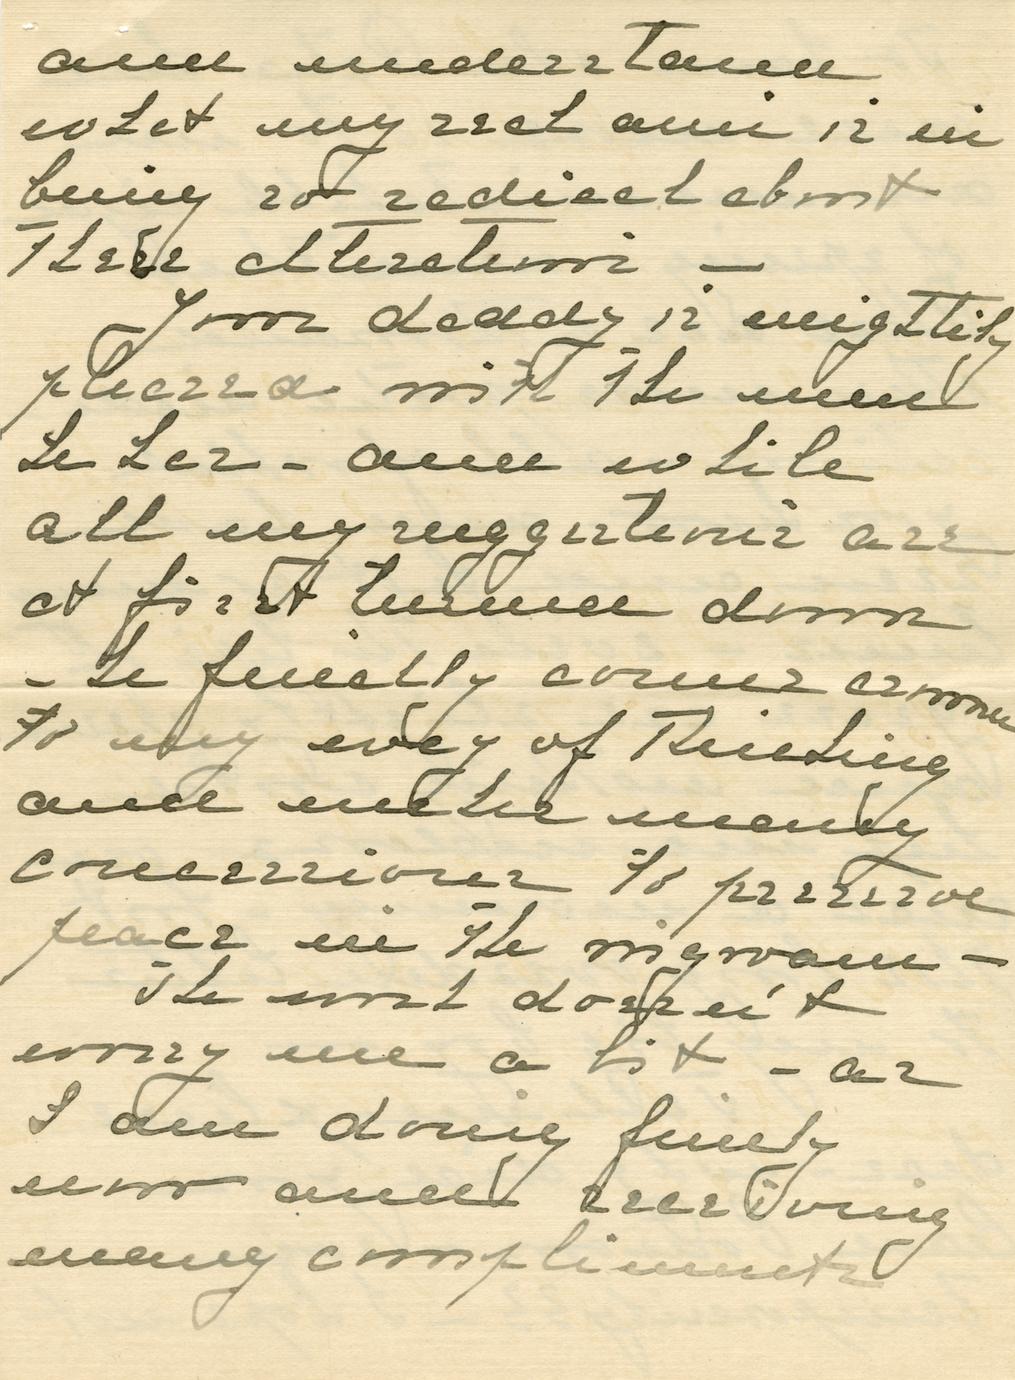 and understand
what my real aim is in
being so radical about
these alterations —
Your daddy is mightily
pleased with the men
he has - and while
all my suggestions are
at first turned down
- he finally comes around
to my way of thinking
and makes many
concessions to preserve
peace in the wigwam —
The work doesn't
worry me a bit - as
I am doing finely
now and receiving
many compliments